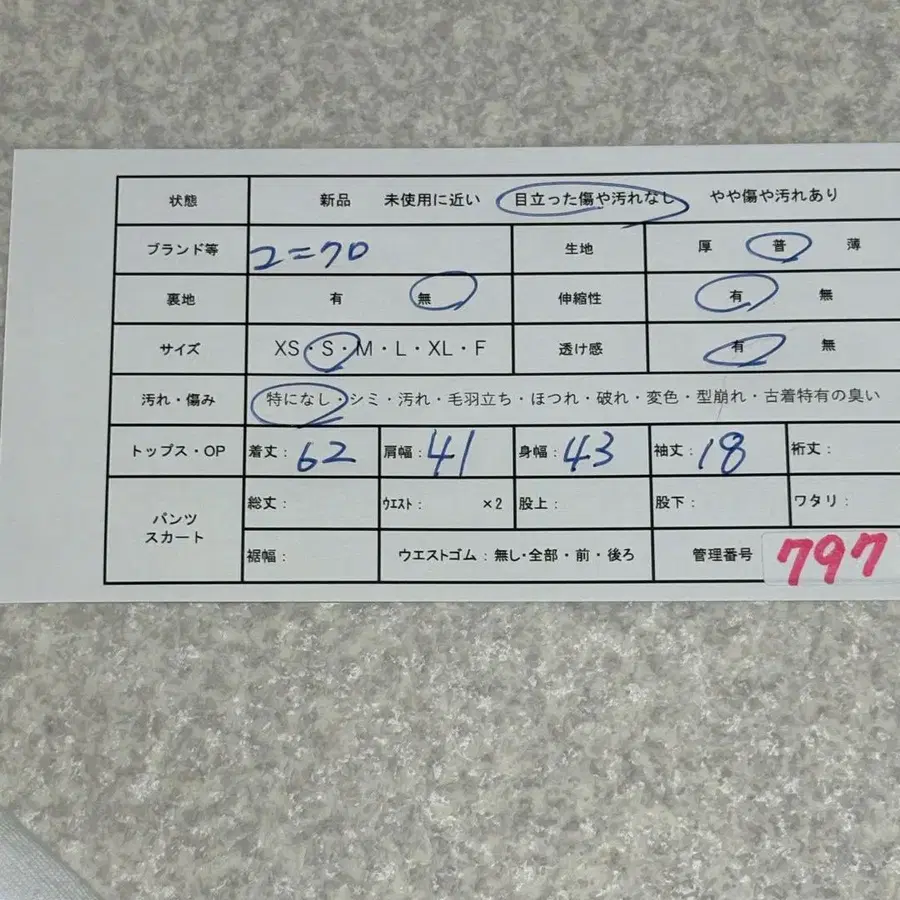 状態 新品 未使用に近い 目立った傷や汚れなし やや傷や汚れあり
ブランド等 ユニクロ 生地 厚 普 薄
裏地 有 無 伸縮性 有 無
サイズ XS・S・M・L・XL・F 透け感 有 無
汚れ・傷み 特になし・シミ・汚れ・毛羽立ち・ほつれ・破れ・変色・型崩れ・古着特有の臭い
トップス・OP 着丈：62 肩幅：41 身幅：43 袖丈：18 裄丈：
パンツ スカート 総丈： ｳｴｽﾄ： ×2 股上： 股下： ワタリ：
裾幅： ウエストゴム：無し・全部・前・後ろ 管理番号 797